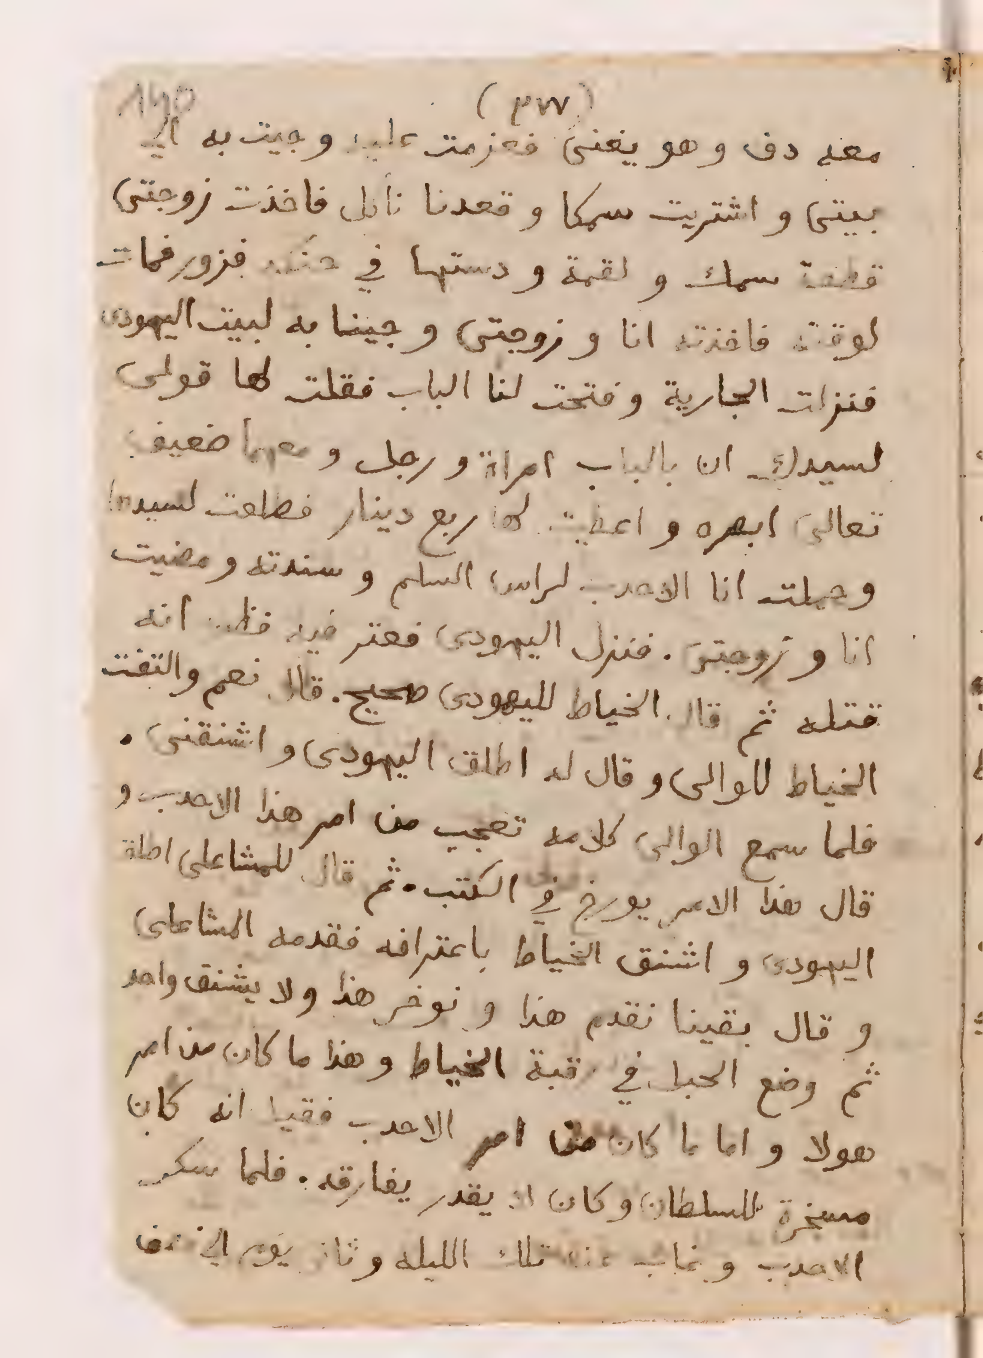 (٣٧٧)
معه دف و هو يغنى فعزمت عليه و جيت به الى
بيتى و اشتريت سمكا و قعدنا نأكل فاخذت زوجتى
قطعة سمك و لقمة و دستهما في حنكه فزور فمات
لوقته فاخذته انا و زوجتى و جينا به لبيت اليهودى
فنزلت الجارية و فتحت لنا الباب فقلت لها قولى
لسيدك ان بالباب امراة و رجل و معهما ضعيف
تعالى ابصره و اعطيت لها ربع دينار فطلعت لسيدها
و حملت انا الاحدب لراس السلم و سندته و مضيت
انا و زوجتى . فنزل اليهودى فعتر فيه فظن انه
قتله ثم قال الخياط لليهودى صحيح . قال نعم والتفت
الخياط للوالى و قال له اطلق اليهودى و اشنقنى .
فلما سمع الوالى كلامه تعجب من امر هذا الاحدب و
قال هذا الامر يورخ في الكتب . ثم قال للمشاعلى اطلق
اليهودى و اشنق الخياط باعترافه فقدمه المشاعلى
و قال بقينا نقدم هذا و نوخر هذا و لا يشنق واحد
ثم وضع الحبل في رقبة الخياط و هذا ما كان من امر
هولا و اما ما كان من امر الاحدب فقيل انه كان
مسخرة للسلطان و كان لا يقدر يفارقه . فلما سكر
الاحدب و غاب عنه تلك الليله و ثانى يوم الى نصف